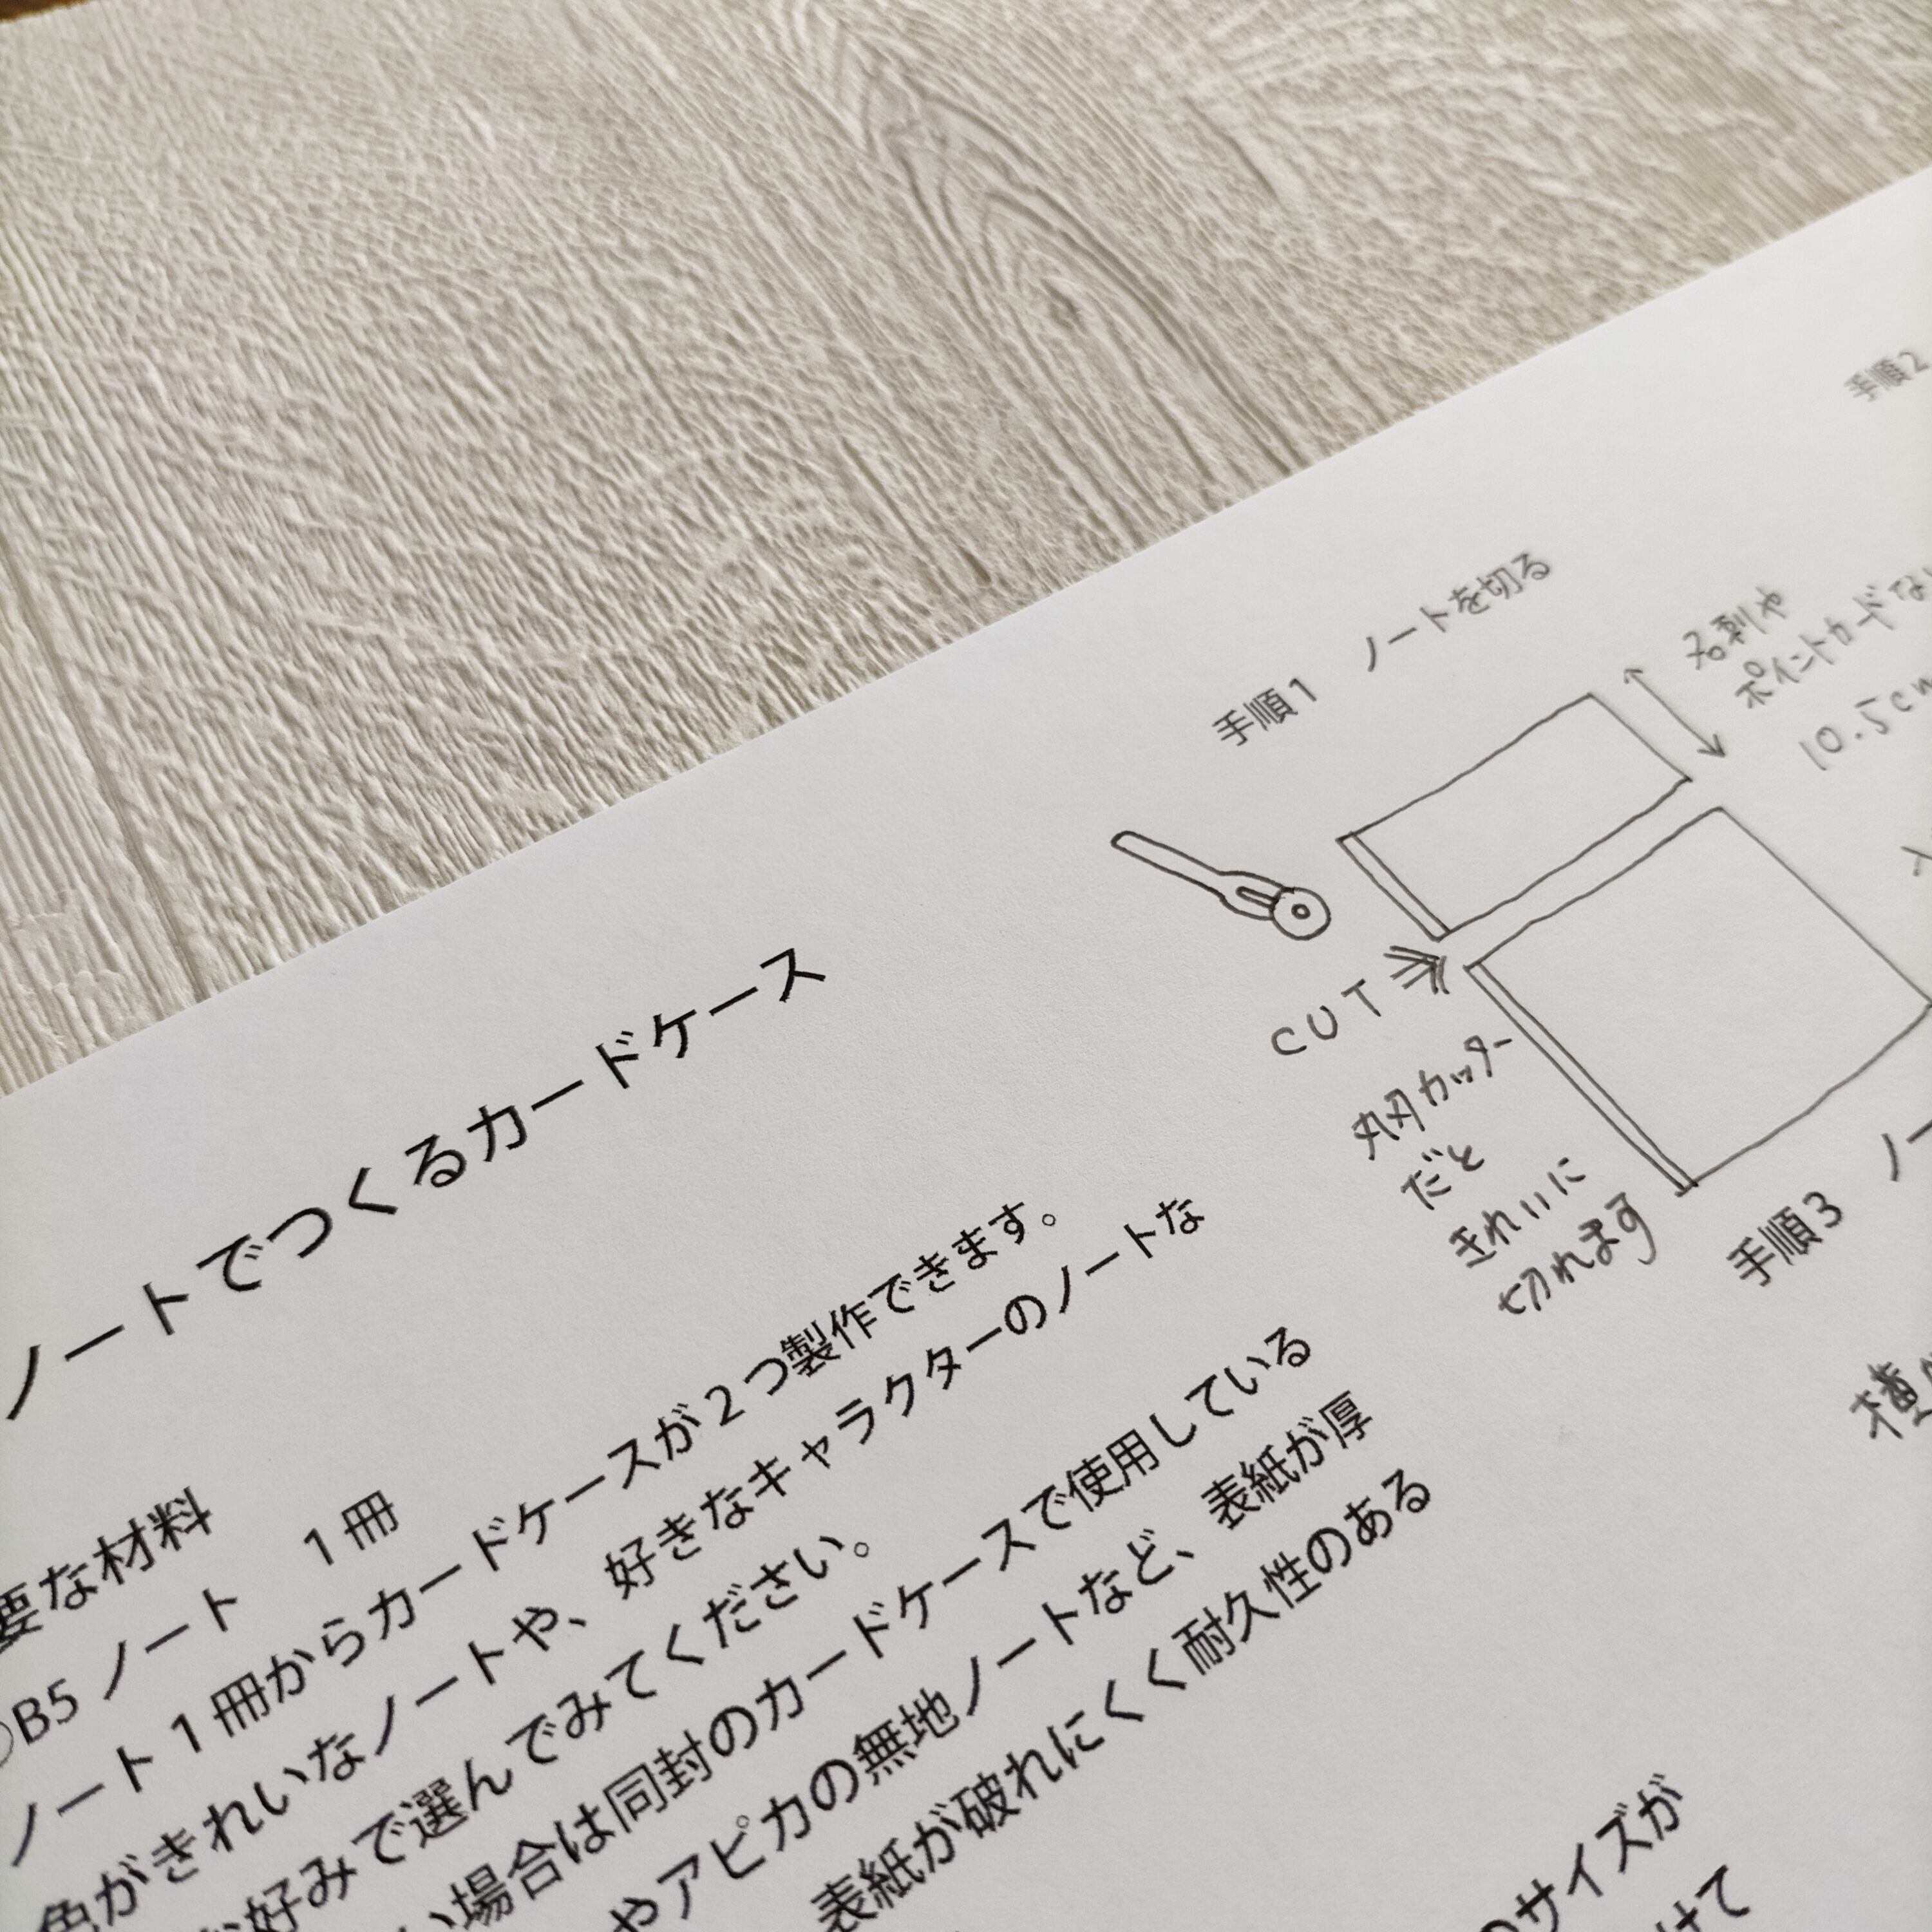 ノートでつくるカードケース
要な材料
B5 ノート 1 冊
ノート 1 冊からカードケースが 2 つ製作できます。
色がきれいなノートや、好きなキャラクターのノートな
好みで選んでみてください。
い場合は同封のカードケースで使用している
やアピカの無地ノートなど、表紙が厚
表紙が破れにくく耐久性のある
のサイズが
けて
手順1 ノートを切る
名刺や
ポイントカードな
10.5cm
CUT
丸刃カッター
だと
きれいに
切れます
手順2
手順3 ノー